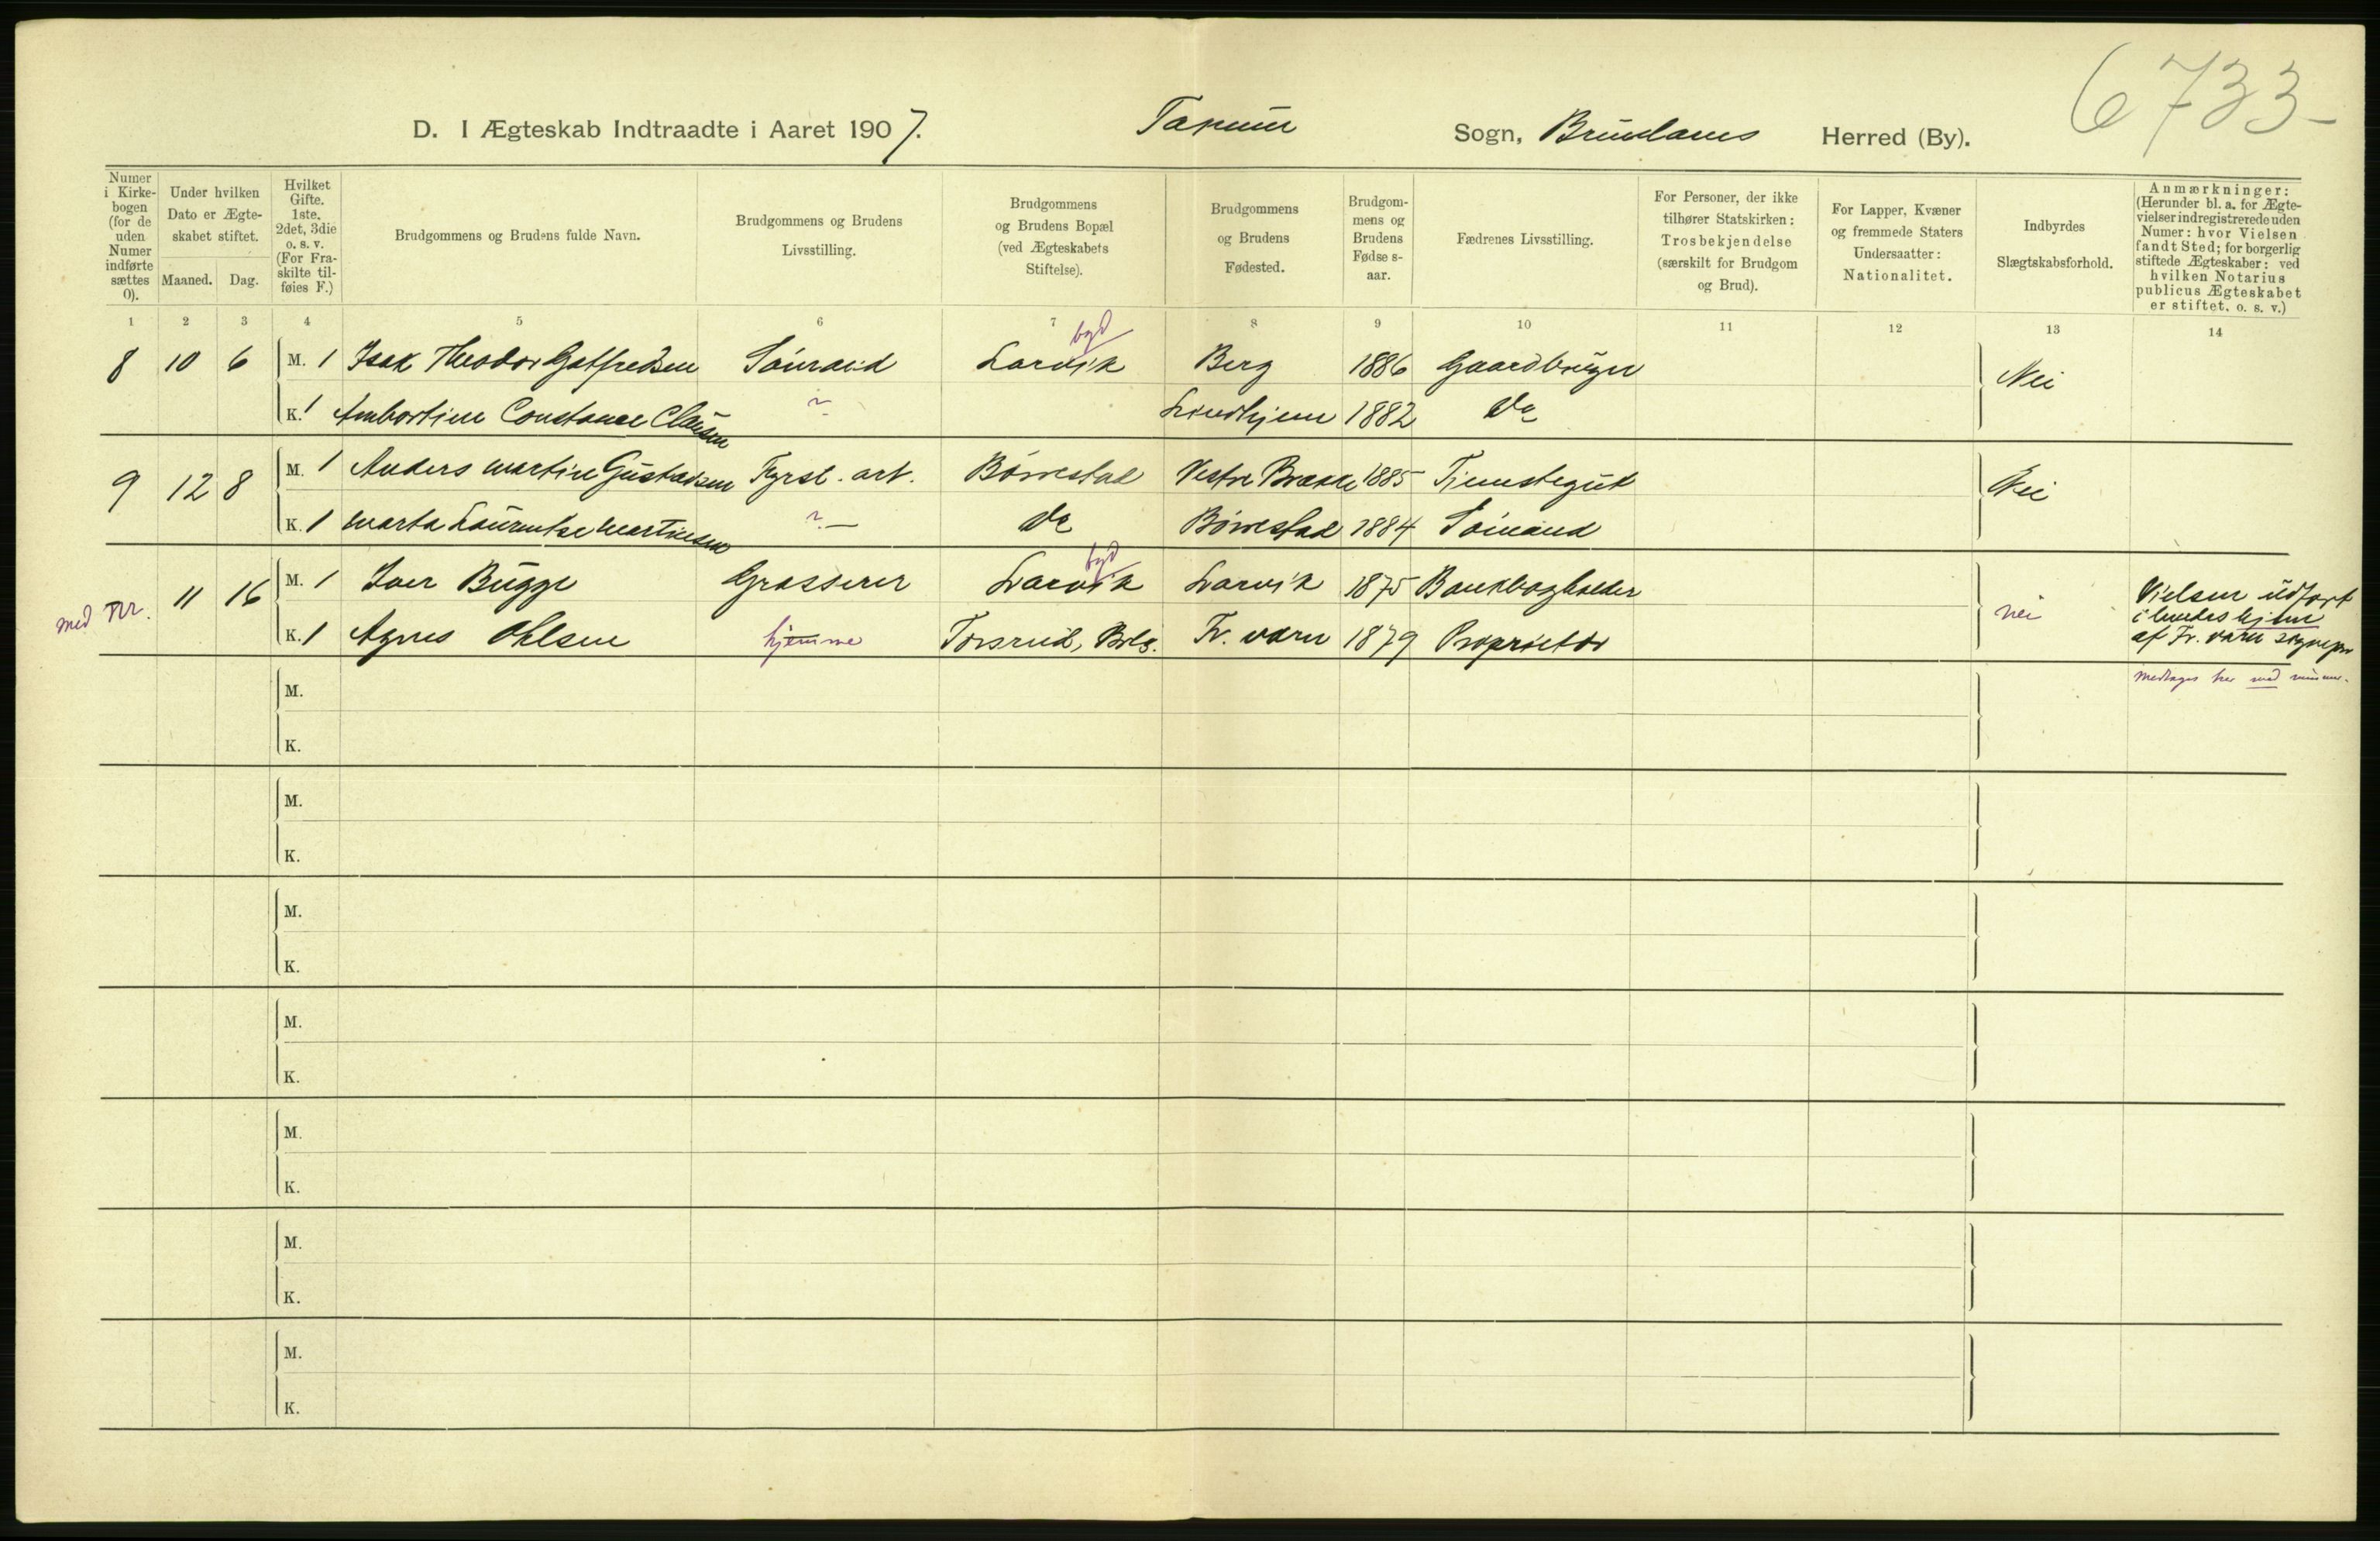 6733-
D. I Ægteskab Indtraadte i Aaret 1907. Tanum Sogn, Brunlanes Herred (By).
Numer i Kirkebogen (for de uden Numer indførte sættes 0).
Under hvilken Dato er Ægteskabet stiftet.
Maaned. Dag.
Hvilket Gifte. 1ste, 2det, 3die o. s. v. (For Fraskilte tilføies F.)
Brudgommens og Brudens fulde Navn.
Brudgommens og Brudens Livsstilling.
Brudgommens og Brudens Bopæl (ved Ægteskabets Stiftelse).
Brudgommens og Brudens Fødested.
Brudgommens og Brudens Fødselsaar.
Fædrenes Livsstilling.
For Personer, der ikke tilhører Statskirken: Trosbekjendelse (særskilt for Brudgom og Brud).
For Lapper, Kvæner og fremmede Staters Undersaatter: Nationalitet.
Indbyrdes Slægtskabsforhold.
Anmærkninger: (Herunder bl. a. for Ægtevielser indregistrerede uden Numer: hvor Vielsen fandt Sted; for borgerlig stiftede Ægteskaber: ved hvilken Notarius publicus Ægteskabet er stiftet, o. s. v.)
1 2 3 4 5 6 7 8 9 10 11 12 13 14
8 10 6 M. 1 Isak Theodor Gotfredsen Sømand Larvik byd Berg 1886 Gaardbruger Nei
K. 1 Ambortine Constance Clausen ? Lindhjem 1882 Do
9 12 8 M. 1 Anders Martin Gustavsen Fyrst. arb. Børrestad Vestre Brække 1885 Tjenstegut Nei
K. 1 Marta Laurentze Martinsen ? - Do Børrestad 1884 Sømand
med Nr. 11 16 M. 1 Iver Bugge Grosserer Larvik byd Larvik 1875 Bankbogholder nei Vielsen udført
K. 1 Agnes Ohlsen hjemme Torsrud, Brln. Fr. værn 1879 Proprietær i hendes hjem
af Fr. værn sognepr
Medtages her med numer.
M.
K.
M.
K.
M.
K.
M.
K.
M.
K.
M.
K.
M.
K.